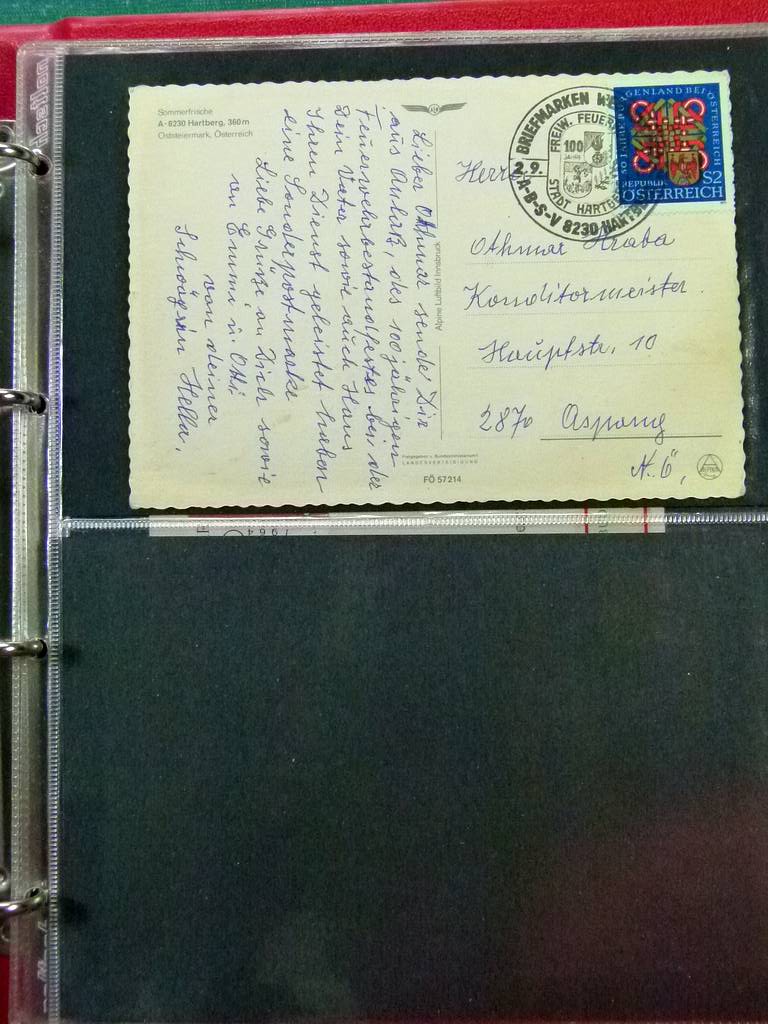 Sommerfrische
A-8230 Hartberg, 360 m
Oststeiermark, Österreich
Lieber Othmar sende Dir
aus Anlaß, des 100 jährigen
Feuerwehrbestandfestes bei der
Dein Vater sowie auch Hans
Ihren Dienst geleistet haben
eine Sonderpostmarke
Liebe Grüße an Dich sowie
an Emmi u. Otti
von deiner
Schwägerin Hella,
Alpine Luftbild Innsbruck
Freigegeben v. Bundesministerium f.
LANDESVERTEIDIGUNG
FÖ 57214
BRIEFMARKEN
FREIW. FEUER
100
JAHRE
2.9.
STADT HARTBE
A-B-S-V 8230 HARTBE
50 JAHRE BURGENLAND BEI ÖSTERREICH
REPUBLIK S2
ÖSTERREICH
Herrn
Othmar
Konditormeister
Hauptstr. 10
2870 Aspang
N.Ö.,